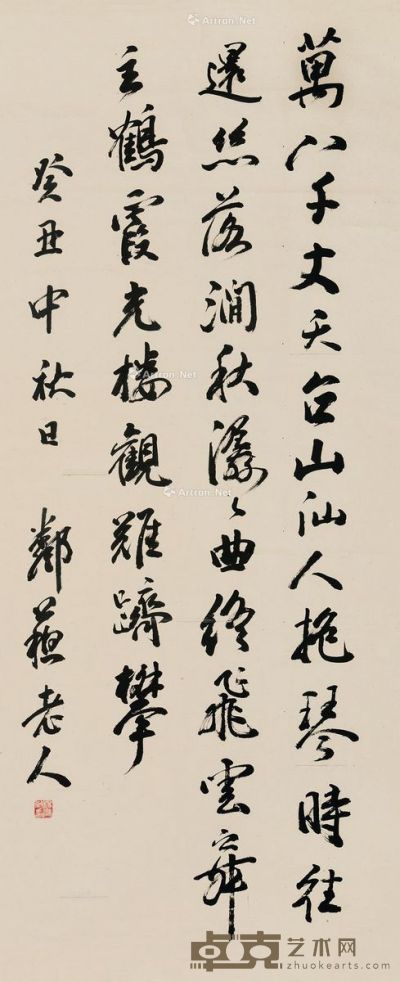 萬八千丈天台山仙人抱琴時往
還絲落澗秋潺々曲終飛雲舞
玄鶴霞光樓觀難躋攀
癸丑中秋日 鄰蘇老人
Artron.Net
Artron.Net
Artron.Net
卓克艺术网
zhuokearts.com